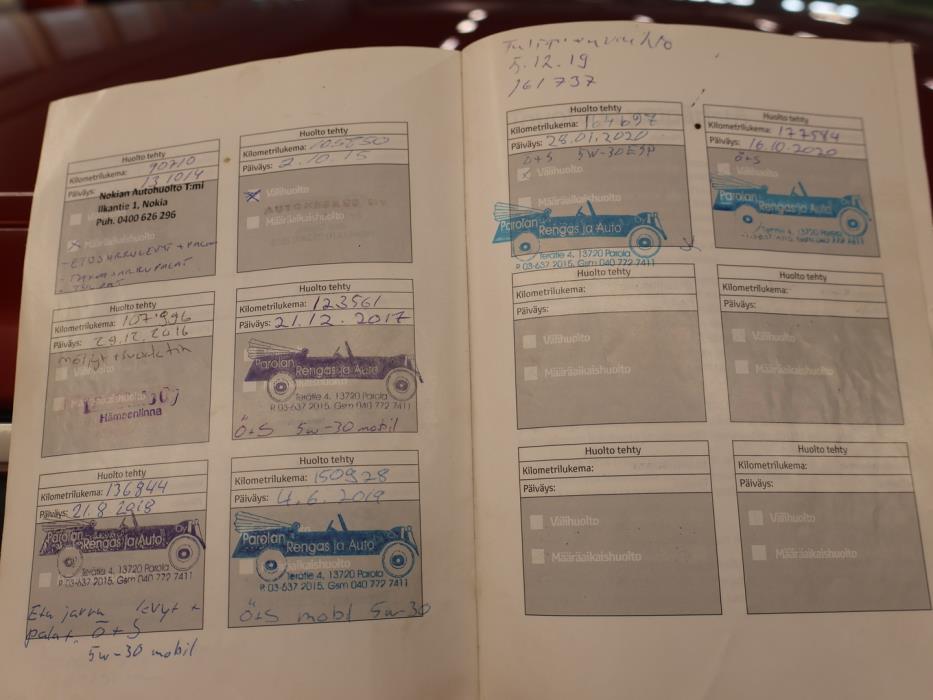 Huolto tehty
Kilometrilukema: 90710
Päiväys: 13.10.14
Nokian Autohuolto T:mi
Ilkantie 1, Nokia
Puh. 0400 626 296
Määräaikaishuolto
Huolto tehty
Kilometrilukema:
Päiväys: 2.10.15
Välihuolto
Määräaikaishuolto
Huolto tehty
Kilometrilukema: 107996
Päiväys: 29.12.2016
Hämeenlinna
Huolto tehty
Kilometrilukema: 123561
Päiväys: 21.12.2017
Parolan
Rengas ja Auto
Terätie 4, 13720 Parola
P. 03-637 2015, Gsm 040 772 7411
Ö+S 5w-30 mobil
Huolto tehty
Kilometrilukema: 136844
Päiväys: 21.8 2018
Parolan Oy
Rengas ja Auto
Terätie 4, 13720 Parola
P. 03-637 2015, Gsm 040 772 7411
Etu jarru levyt +
palat. Ö+S
5w-30 mobil
Huolto tehty
Kilometrilukema: 150928
Päiväys: 4.6.2019
Parolan Oy
Rengas ja Auto
Terätie 4, 13720 Parola
P. 03-637 2015, Gsm 040 772 7411
Ö+S mobl 5w-30
5.12.19
161737
Huolto tehty
Kilometrilukema: 164697
Päiväys: 28.01.2020
Ö+S 5W-30 ESP
Välihuolto
Määräaikaishuolto
Parolan Oy
Rengas ja Auto
Terätie 4, 13720 Parola
P. 03-637 2015, Gsm 040 772 7411
Huolto tehty
Kilometrilukema: 177584
Päiväys: 16.10.2020
Ö+S
Välihuolto
Parolan
Rengas ja Auto
Huolto tehty
Kilometrilukema:
Päiväys:
Välihuolto
Määräaikaishuolto
Huolto tehty
Kilometrilukema:
Päiväys:
Välihuolto
Määräaikaishuolto
Huolto tehty
Kilometrilukema:
Päiväys:
Välihuolto
Määräaikaishuolto
Huolto tehty
Kilometrilukema:
Päiväys:
Välihuolto
Määräaikaishuolto